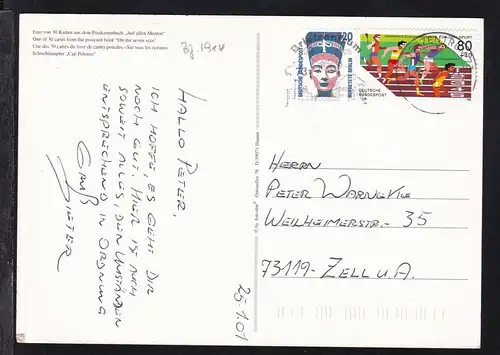 Eine von 30 Karten aus dem Postkartenbuch „Auf allen Meeren"
One of 30 cards from the postcard book "On the seven seas"
Une des 30 cartes du livre de cartes postales «Sur tous les océans»
Schnelldampfer „Cap Polonio"
Bj. 1914
HALLO PETER,
ICH HOFFE, ES GEHT DIR
NOCH GUT. HIER IST AUCH
SOWEIT ALLES, DEN UMSTÄNDEN
ENTSPRECHEND IN ORDNUNG
GRUß
DIETER
25.1.01
Briefzentrum
20
DEUTSCHE BUNDESPOST
NOFRETETE BERLIN
SPORT
80
DEUTSCHE
BUNDESPOST
HERRN
PETER WARNEKE
WEILHEIMERSTR. 35
73119- ZELL U.A.